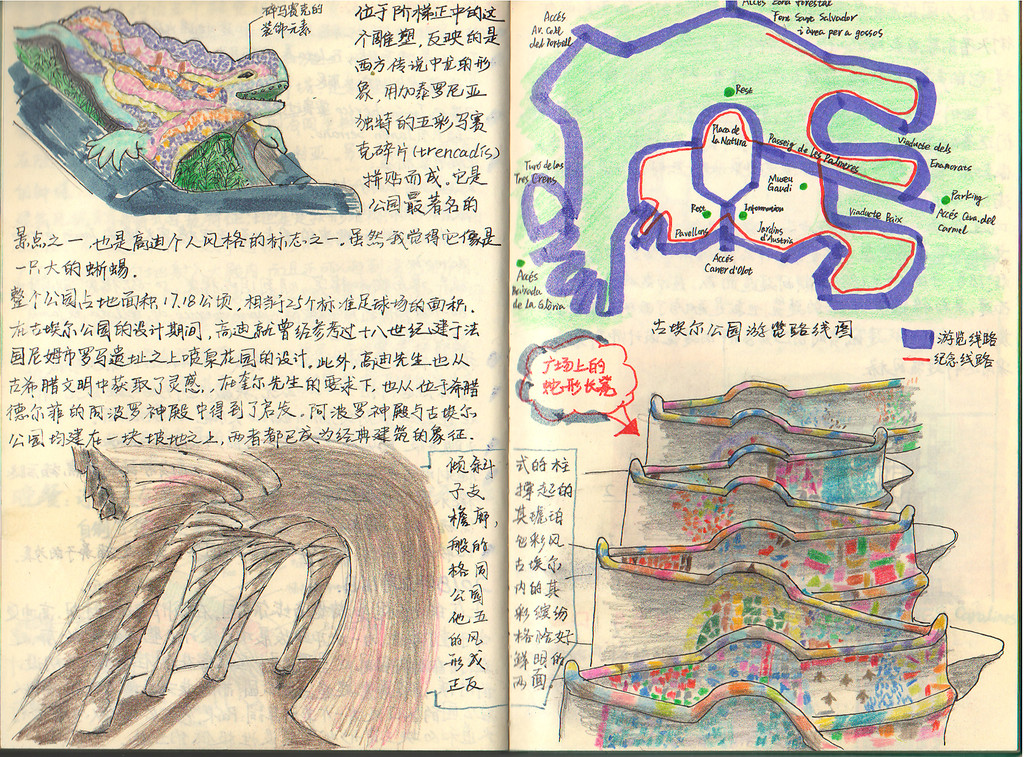 碎马赛克的
装饰元素
位于阶梯正中的这
个雕塑,反映的是
西方传说中龙的形
象,用加泰罗尼亚
独特的五彩马赛
克碎片(trencadís)
拼贴而成。它是
公园最著名的
景点之一,也是高迪个人风格的标志之一。虽然我觉得它像是
一只大的蜥蜴.
整个公园占地面积17.18公顷,相当25个标准足球场的面积.
在古埃尔公园的设计期间,高迪就曾经参考过十八世纪建于法
国尼姆市罗马遗址之上喷泉花园的设计.此外,高迪先生也从
古希腊文明中获取了灵感.在奎尔先生的要求下,也从位于希腊
德尔菲的阿波罗神殿中得到了启发.阿波罗神殿与古埃尔
公园均建在一块坡地之上,两者都已成为经典建筑的象征.
倾斜式的柱
子支撑起的
檐廊,其琥珀
般的色彩风
格同古埃尔
公园内的其
他五彩缤纷
的风格恰好
形成鲜明的
正反两面。
Accés zona forestal
Font Sant Salvador
i àrea per a gossos
Accés
Av. Coll
del Portell
Rest
Plaça de
la Natura
Passeig de les Palmeres
Viaducte dels
Enamorats
Turó de les
Tres Creus
Museu
Gaudí
Parking
Accés Ctra. del
Carmel
Rest
Information
Viaducte Baix
Pavellons
Jardins
d'Austria
Accés
Carrer d'Olot
Accés
Baixada
de la Glòria
古埃尔公园游览路线图
游览线路
纪念线路
广场上的
蛇形长凳